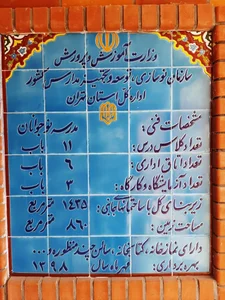 وزارت آموزش و پرورش
سازمان نوسازی، توسعه و تجهیز مدارس کشور
اداره کل استان تهران
مشخصات فنی: مدرسه نوجوانان
تعداد کلاس درس: ۱۱ باب
تعداد اتاق اداری: ۶ باب
تعداد آزمایشگاه و کارگاه: ۳ باب
زیربنای کل با ساختمان جانبی: ۱۴۳۵ مترمربع
مساحت زمین: ۸۶۰ مترمربع
دارای نمازخانه، کتابخانه، سالن چند منظوره و...
بهره برداری: مهرماه سال ۱۳۹۸